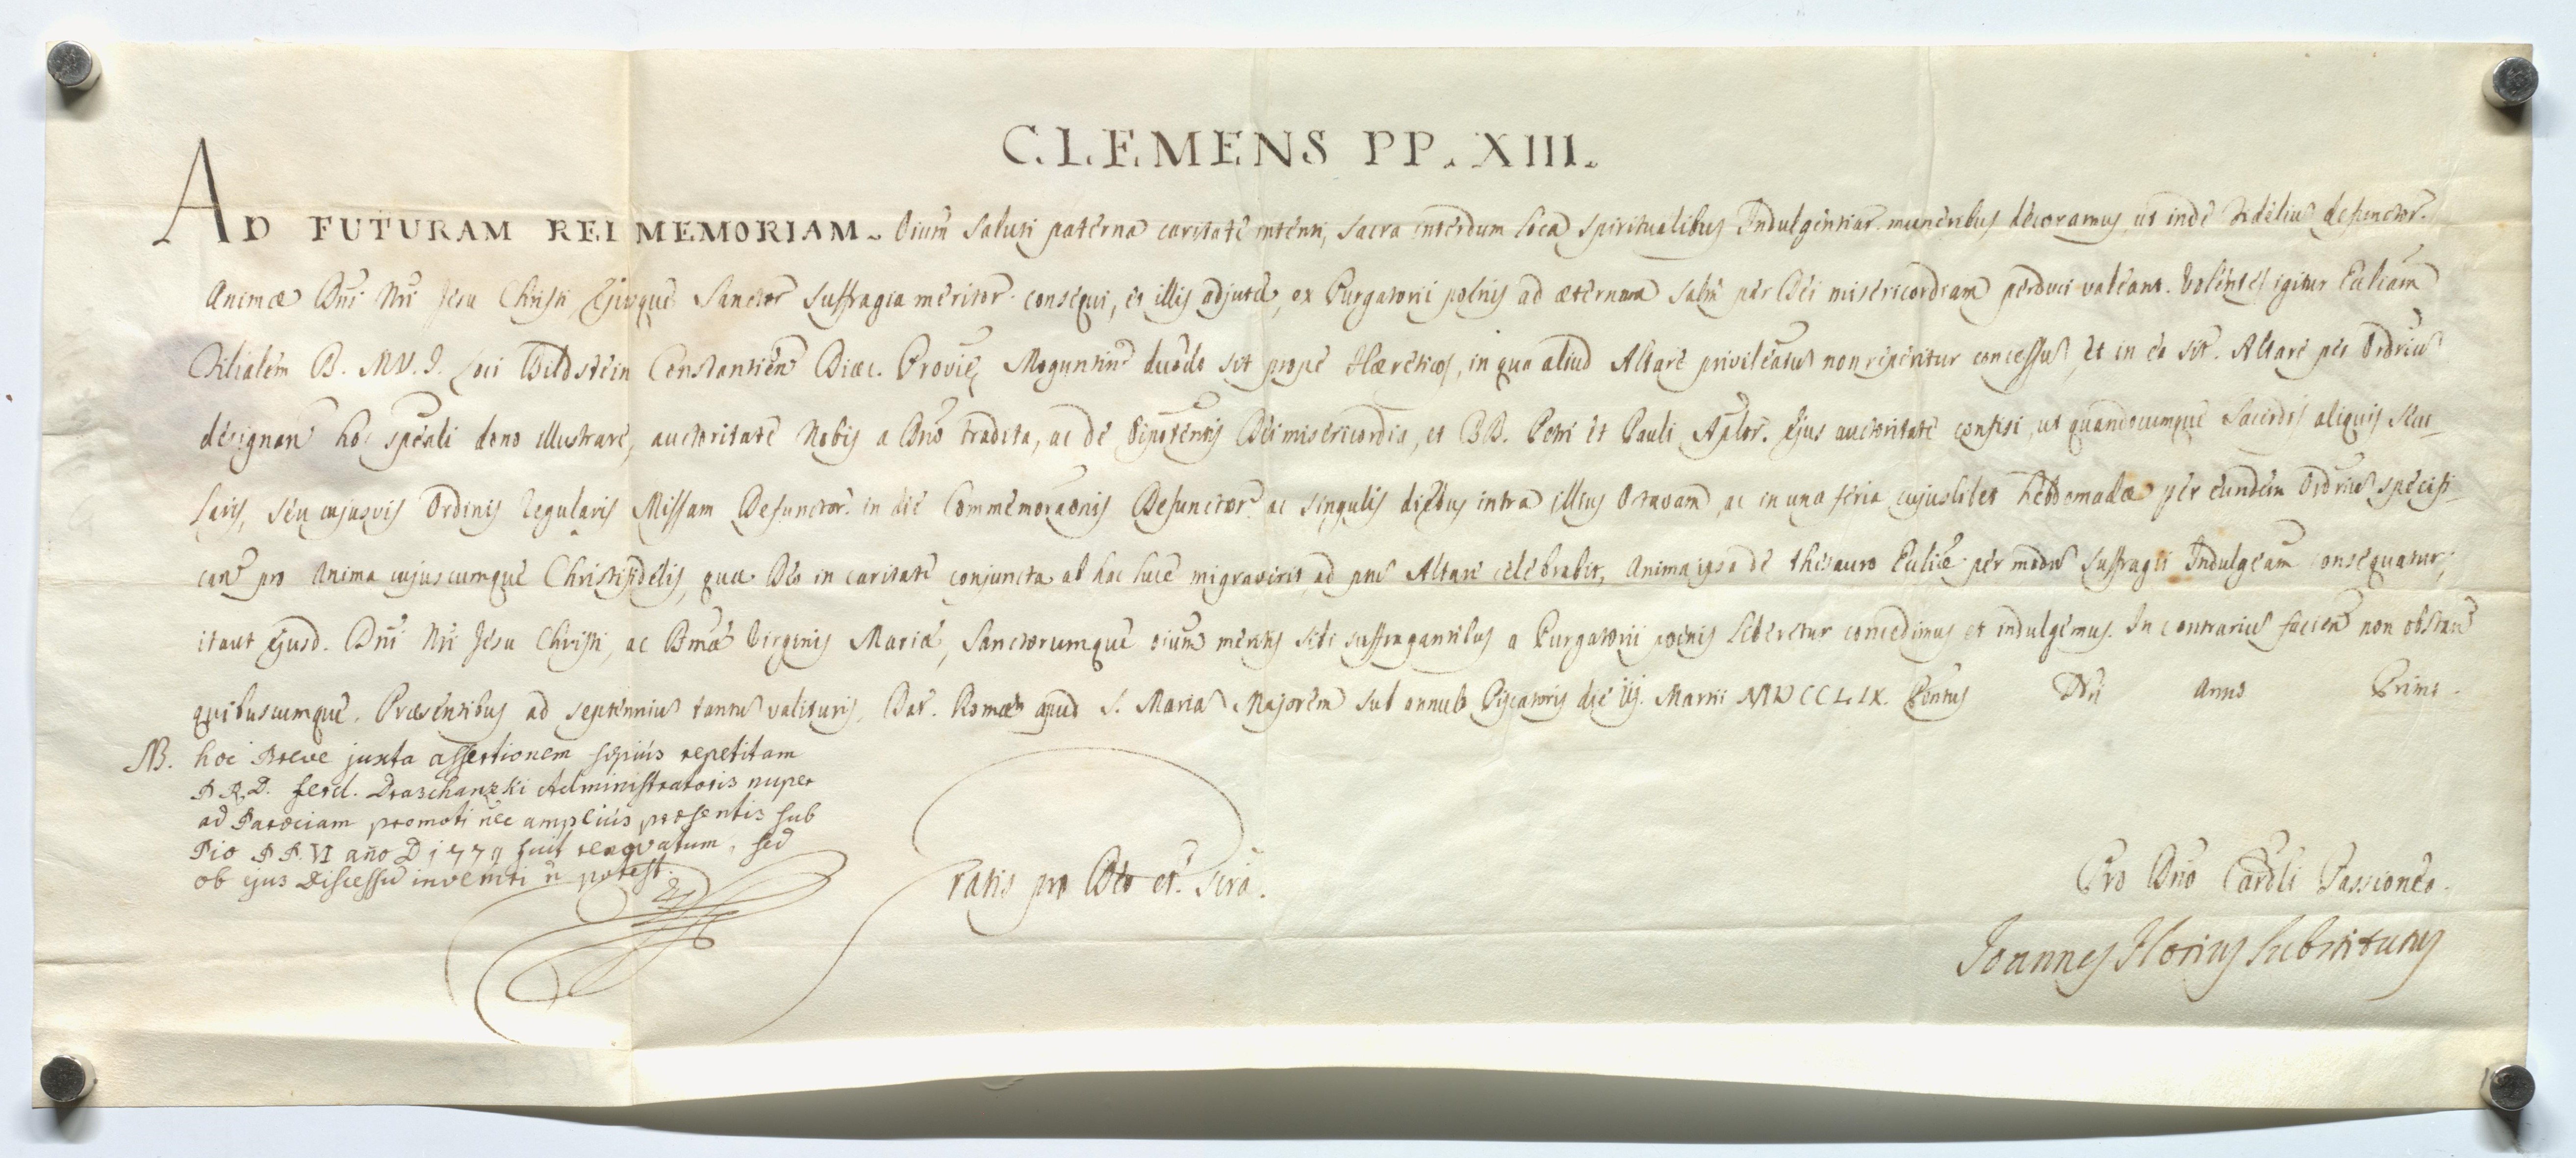 CLEMENS PP. XIII.
AD FUTURAM REI MEMORIAM. Oium saluti paterna caritate intenti, sacra interdum loca spiritualibus Indulgentiar. muneribus decoramus, ut inde Fideliu defunctor.
Animæ Dni Nri Jesu Christi, Ejusque Sanctor suffragia meritor. consequi, et illis adjutæ, ex Purgatorii poenis ad æternam salm per Dei misericordiam perduci valeant. Volentes igitur Ecliam
Filialem B. M. V. I. loci Bildstein Constantien Diæc. Provie, Moguntin dudo sit prope Hæreticos, in qua aliud Altare privileatu non reperitur concessu, et in ea sit. Altare per Ordriu
designan hoc speali dono illustrare, auctoritate Nobis a Dno tradita, ac de Oipotentis Dei misericordia, et BB. Petri et Pauli Aplor. Ejus auctoritate confisi, ut quandocumque Sacerdos aliquis Secu-
laris, seu cujusvis Ordinis Regularis Missam Defunctor. in die Commemoraonis Defunctor. ac singulis diebus intra illius Octavam, ac in una feria cujuslibet hebdomadæ per eundem Ordriu specifi-
can pro Anima cujuscumque Christifidelis, quæ Deo in caritate conjuncta ab hac luce migraverit, ad pns Altare celebrabit, Anima ipsa de thesauro Ecliæ per modu suffragii Indulgeam consequatur;
itaut Ejusd. Dni Nri Jesu Christi, ac Bmæ Virginis Mariæ, Sanctorumque oium meritis sibi suffragantibus a Purgatorii poenis liberetur concedimus et indulgemus. In contrariu facien non obstan
quibuscumque. Præsentibus ad septenniu tantu valituris. Dat. Romæ apud S. Maria Majorem sub annulo Piscatoris die iij. Martii MDCCLIX. Pontus Nri Anno Primo.
NB. hoc Breve juxta assertionem sæpiús repetitam
P.R.D. Ferd. Draschanzki Administratoris nuper
ad Parociam promoti nec ampliús præsentis sub
Pio P.P. VI año D 1779 fuit renovatum, sed
ob ejus Discessu inveniri ñ potest.
ratis pro Deo et. Sira.
Pro Dno Cardli Passioneo.
Joannes Florius Substitutus